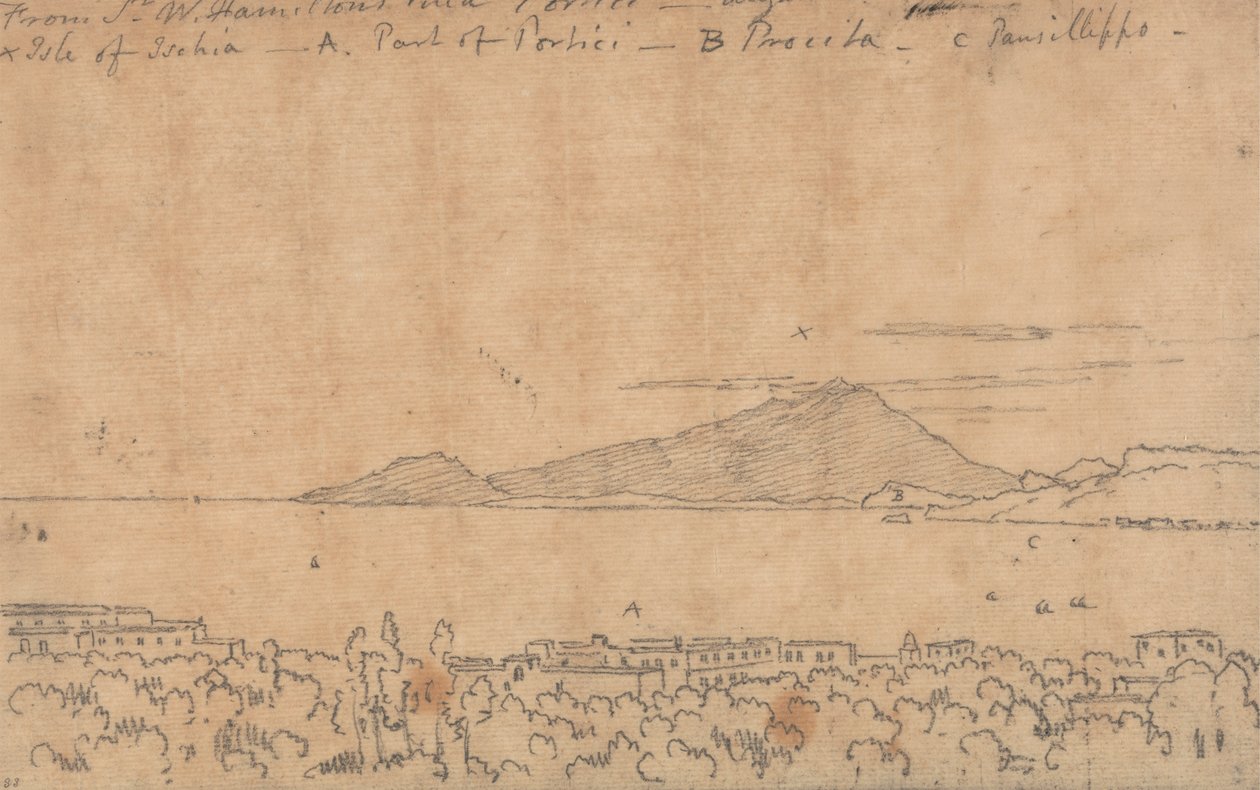 From Sr. W. Hamiltons Villa Portici —
× Isle of Ischia — A. Part of Portici — B Procita — C Pausillippo —
×
B
C
A
88